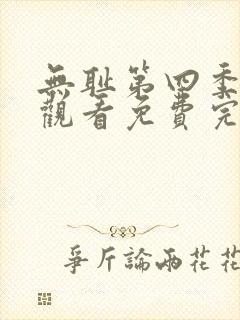 無耻第四季
觀看免費完
爭斤論兩花花